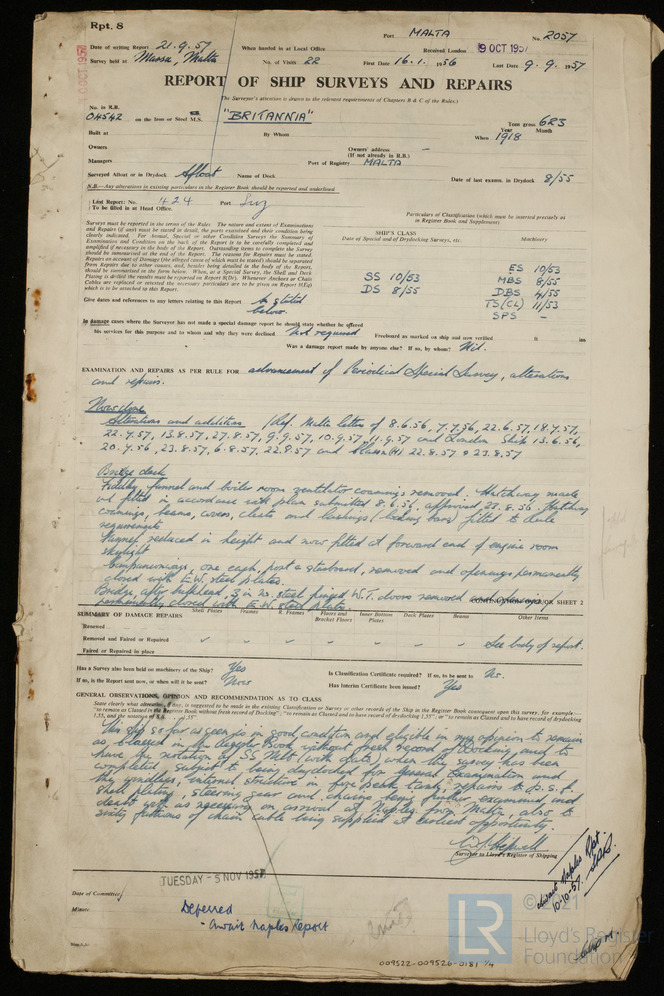 Rpt. 8
Port MALTA No. 2057
Date of writing Report 21.9.57 When handed in at Local Office Received London 9 OCT 1957
Survey held at Marsa, Malta No. of Visits 22 First Date 16.1.1956 Last Date 9.9.1957
REPORT OF SHIP SURVEYS AND REPAIRS
(The Surveyor's attention is drawn to the relevant requirements of Chapters B & C of the Rules.)
No. in R.B. 04542 on the Iron or Steel M.S. "BRITANNIA" Tons gross 623
Built at By Whom When Year 1918 Month
Owners Owners' address (If not already in R.B.) –
Managers Port of Registry MALTA
Surveyed Afloat or in Drydock Afloat Name of Dock Date of last exam. in Drydock 8/55
N.B.—Any alterations in existing particulars in the Register Book should be reported and underlined
Last Report: No. 424 Port
To be filled in at Head Office.
Particulars of Classification (which must be inserted precisely as in Register Book and Supplement)
Surveys must be reported in the terms of the Rules. The nature and extent of Examinations
and Repairs (if any) must be stated in detail, the parts examined and their condition being
clearly indicated. For Annual, Special or other Condition Surveys the Summary of
Examination and Condition on the back of the Report is to be carefully completed and
amplified if necessary in the body of the Report. Outstanding items to complete the Survey
should be summarised at the end of the Report. The reasons for Repairs must be stated.
Repairs on account of Damage (the alleged cause of which must be stated) should be separated
from Repairs due to other causes, and, besides being detailed in the body of the Report,
should be summarised in the form below. When, at a Special Survey, the Shell and Deck
Plating is drilled the results must be reported on Report 8(Dr). Whenever Anchors or Chain
Cables are replaced or retested the necessary particulars are to be given on Report 8(Eq)
which is to be attached to this Report.
SHIP'S CLASS Machinery
Date of Special and of Drydocking Surveys, etc.
SS 10/53
DS 8/55
ES 10/53
MBS 8/55
DBS 4/55
TS(CL) 11/53
SPS –
Give dates and references to any letters relating to this Report As stated below.
In damage cases where the Surveyor has not made a special damage report he should state whether he offered
his services for this purpose and to whom and why they were declined Not required Freeboard as marked on ship and now verified ft ins
Was a damage report made by anyone else? If so, by whom? Nil.
EXAMINATION AND REPAIRS AS PER RULE FOR advancement of Periodical Special Survey, alterations
and repairs.
Now done
Alterations and addition (Ref. Malta letters of 8.6.56, 7.7.56, 22.6.57, 18.7.57,
22.7.57, 13.8.57, 27.8.57, 9.9.57, 10.9.57, 11.9.57 and London Ship 13.6.56,
20.7.56, 23.8.57, 6.8.57, 22.8.57 and 22.8.57 & 23.8.57
Bridge deck
Fiddley, funnel and boiler room ventilator coamings removed. Hatchway made
and fitted in accordance with plan submitted 8.6.56, approved 23.8.56. Hatchway
coamings, beams, covers, cleats and lashings (locking bars) fitted to Rule
requirements
Funnel reduced in height and now fitted at forward end of engine room
skylight
Companionways, one each, port & starboard, removed and openings permanently
closed with E.W. steel plates.
Bridge, after bulkhead, 3 in No. steel hinged W.T. doors removed and openings
permanently closed with E.W. steel plates.
CONTINUATION ON SHEET 2
SUMMARY OF DAMAGE REPAIRS Shell Plates Frames R. Frames Floors and Bracket Floors Inner Bottom Plates Deck Plates Beams Other Items
Renewed
Removed and Faired or Repaired See body of report.
Faired or Repaired in place
Has a Survey also been held on machinery of the Ship? Yes Is Classification Certificate required? If so, to be sent to No.
If so, is the Report sent now, or when will it be sent? Now Has Interim Certificate been issued? Yes
GENERAL OBSERVATIONS, OPINION AND RECOMMENDATION AS TO CLASS
State clearly what alteration, if any, is suggested to be made in the existing Classification or Survey or other records of the Ship in the Register Book consequent upon this survey, for example—
"to remain as Classed in the Register Book without fresh record of Docking", "to remain as Classed and to have record of drydocking 1,55", or "to remain as Classed and to have record of drydocking
1,55, and the notation of S.S. 1,55"
This ship so far as seen is in good condition and eligible in my opinion to remain
as Classed in the Register Book without fresh record of Docking, and to
have the notation of SS Mlt (with date) when the survey has been
completed subject to being drydocked for General Examination and
the windlass, internal structure in fore peak tank, repairs to P. & S.
shell plating, steering gear and chains being further examined and
dealt with as necessary on arrival at Naples from Malta, also to
sixty fathoms of chain cable being supplied at earliest opportunity.
Surveyor to Lloyd's Register of Shipping
TUESDAY - 5 NOV 1957
Date of Committee
Minute
Deferred
- Await Naples Report
Await Naples Rpt.
10-10-57
009522-009526-0181 1/4
© 2021
LR
Lloyd's Register
Foundation